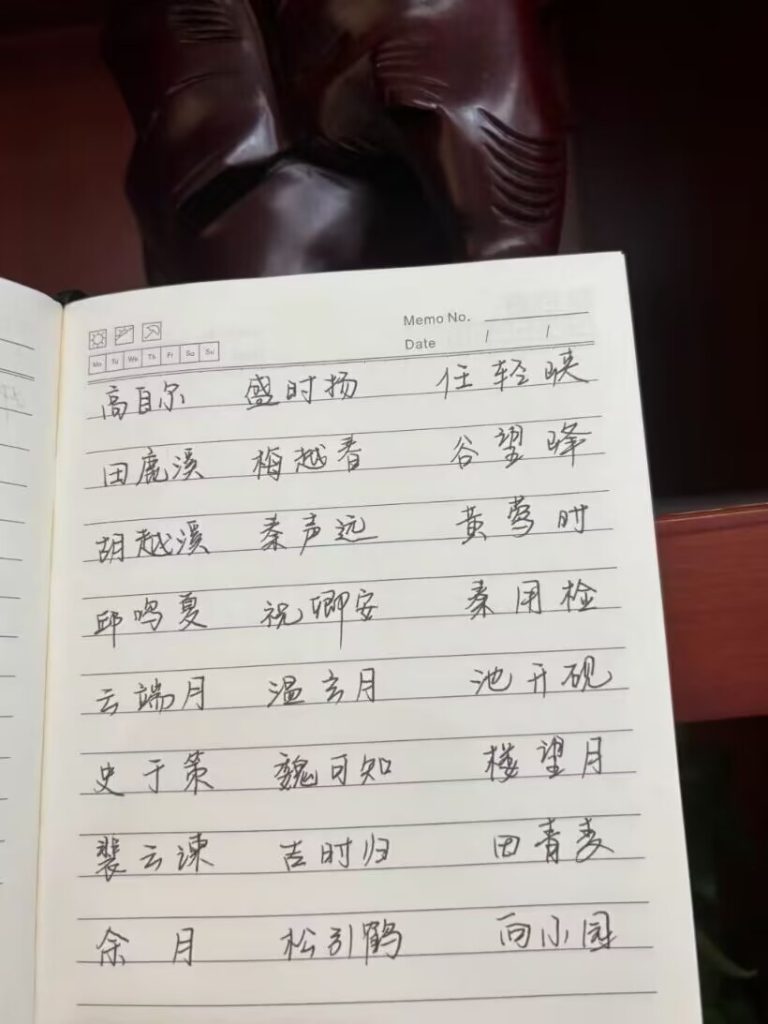 Memo No.
Mo Tu We Th Fr Sa Su
Date / /
高自尔 盛时扬 任轻峡
田鹿溪 梅越春 谷望峰
胡越溪 秦声远 黄莺时
邱鸣夏 祝卿安 秦用检
云端月 温玄月 池开砚
史于策 魏可知 楼望月
裴云谏 吉时归 田青麦
余月 松引鹤 向小园